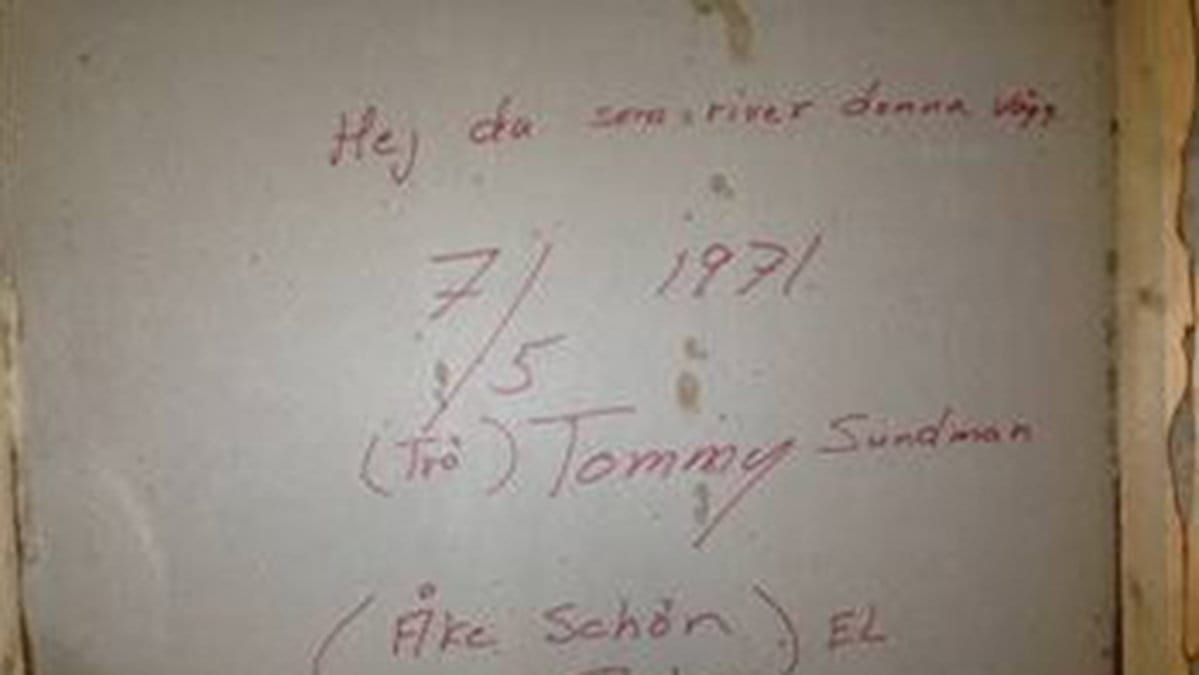 Hej du som river denna vägg
7/5 1971
(Trä) Tommy Sundman
(Åke Schön) EL